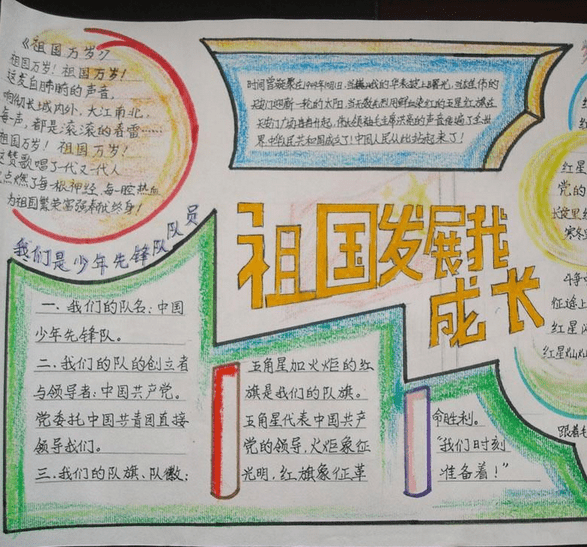 《祖国万岁》
祖国万岁！祖国万岁！
这发自肺腑的声音，
响彻长城内外、大江南北。
每一声，都是滚滚的春雷……
祖国万岁！祖国万岁！
这赞歌唱了一代又一代人
点燃了每一根神经、每一腔热血
为祖国繁荣富强奉献终身！
我们是少年先锋队队员
时间
华表
上曙光，
伟大的
天安门迎新一轮的太阳
鲜血染红的五星红旗在
天安门广场冉冉升起，伟大领袖毛主席洪亮的声音传遍了全世
界，中华人民共和国成立了！中国人民从此站起来了！
祖国发展我
成长
一、我们的队名：中国
少年先锋队。
二、我们的队的创立者
与领导者：中国共产党。
党委托中国共青团直接
领导我们。
三、我们的队旗、队徽：
五角星加火炬的红
旗是我们的队旗。
五角星代表中国共产
党的领导，火炬象征
光明，红旗象征革
命胜利。
“我们时刻
准备着！”
红星
党的
斗争
征途上
红星
跟着